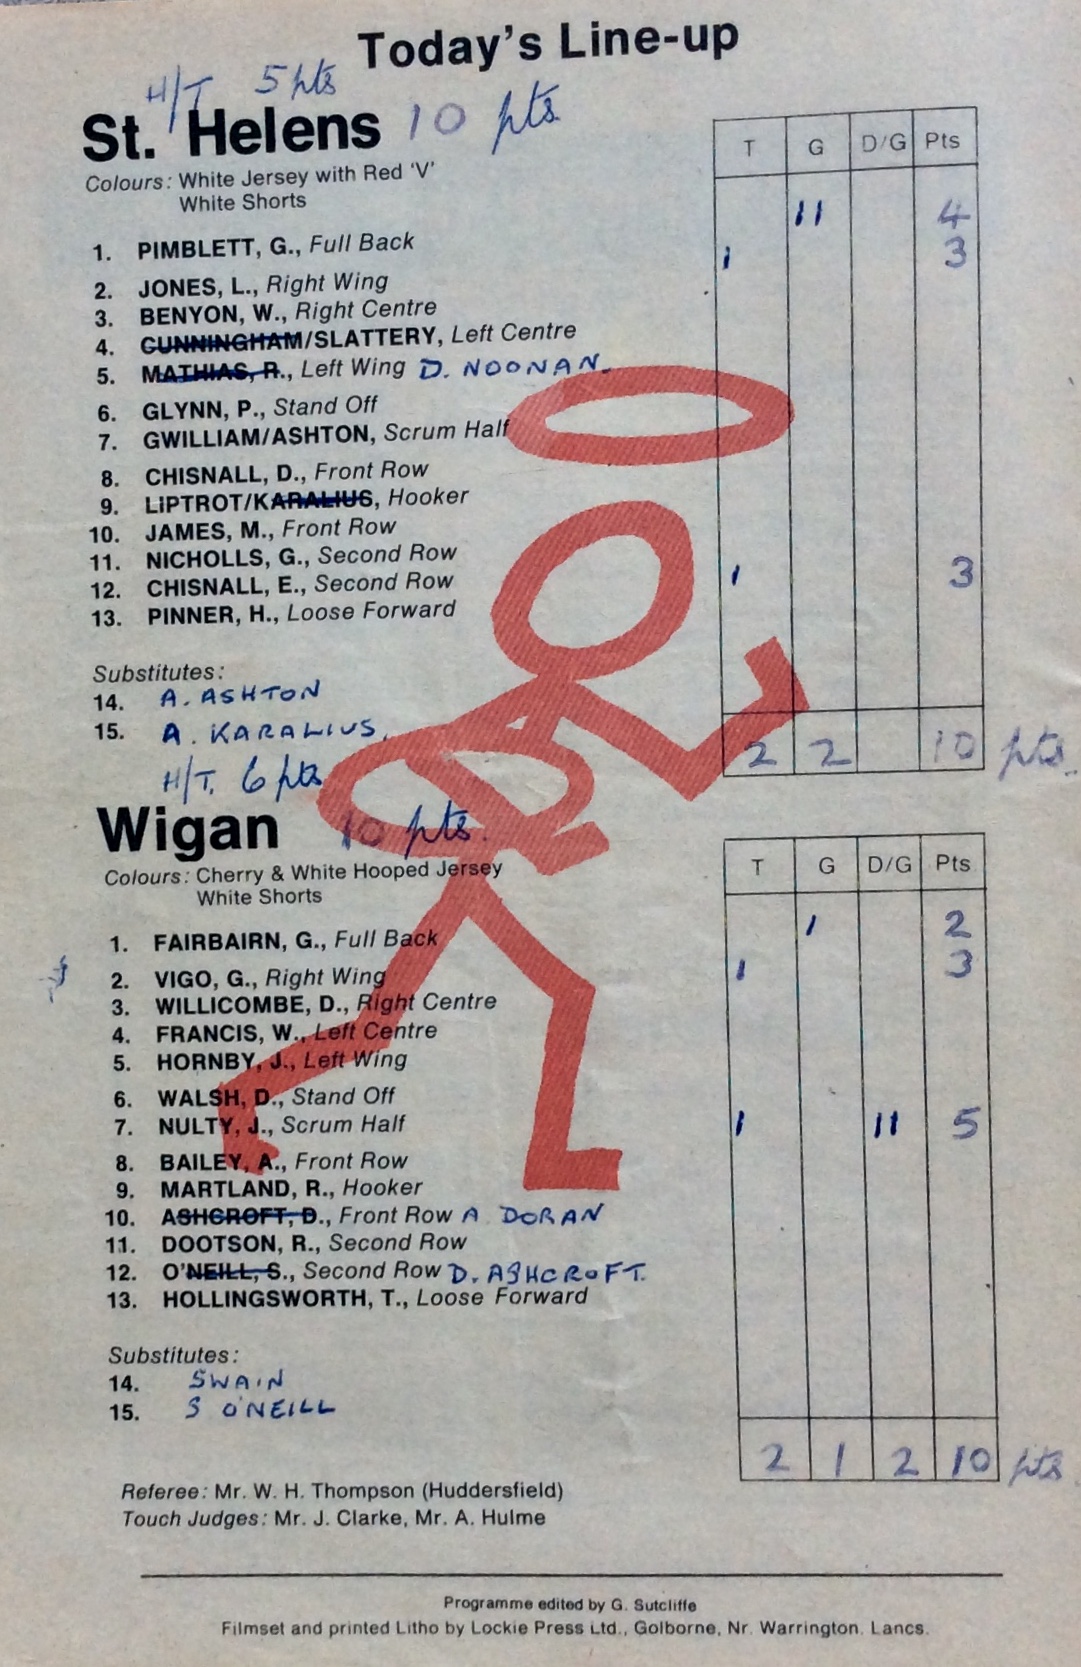 Today's Line-up
H/T 5 pts
St. Helens 10 pts
Colours: White Jersey with Red 'V'
White Shorts
T G D/G Pts
11 4
1. PIMBLETT, G., Full Back
1 3
2. JONES, L., Right Wing
3. BENYON, W., Right Centre
4. CUNNINGHAM/SLATTERY, Left Centre
5. MATHIAS, R., Left Wing D. NOONAN.
6. GLYNN, P., Stand Off
7. GWILLIAM/ASHTON, Scrum Half
8. CHISNALL, D., Front Row
9. LIPTROT/KARALIUS, Hooker
10. JAMES, M., Front Row
11. NICHOLLS, G., Second Row 1 3
12. CHISNALL, E., Second Row
13. PINNER, H., Loose Forward
Substitutes:
14. A. ASHTON
15. A. KARALIUS.
2 2 10 pts.
H/T. 6 pts
Wigan 10 pts.
Colours: Cherry & White Hooped Jersey
White Shorts
T G D/G Pts
1. FAIRBAIRN, G., Full Back 1 2
2. VIGO, G., Right Wing 1 3
3. WILLICOMBE, D., Right Centre
4. FRANCIS, W., Left Centre
5. HORNBY, J., Left Wing
6. WALSH, D., Stand Off
7. NULTY, J., Scrum Half 1 11 5
8. BAILEY, A., Front Row
9. MARTLAND, R., Hooker
10. ASHCROFT, D., Front Row A DORAN
11. DOOTSON, R., Second Row
12. O'NEILL, S., Second Row D. ASHCROFT.
13. HOLLINGSWORTH, T., Loose Forward
Substitutes:
14. SWAIN
15. S O'NEILL
2 1 2 10 pts
Referee: Mr. W. H. Thompson (Huddersfield)
Touch Judges: Mr. J. Clarke, Mr. A. Hulme
Programme edited by G. Sutcliffe
Filmset and printed Litho by Lockie Press Ltd., Golborne, Nr. Warrington. Lancs.